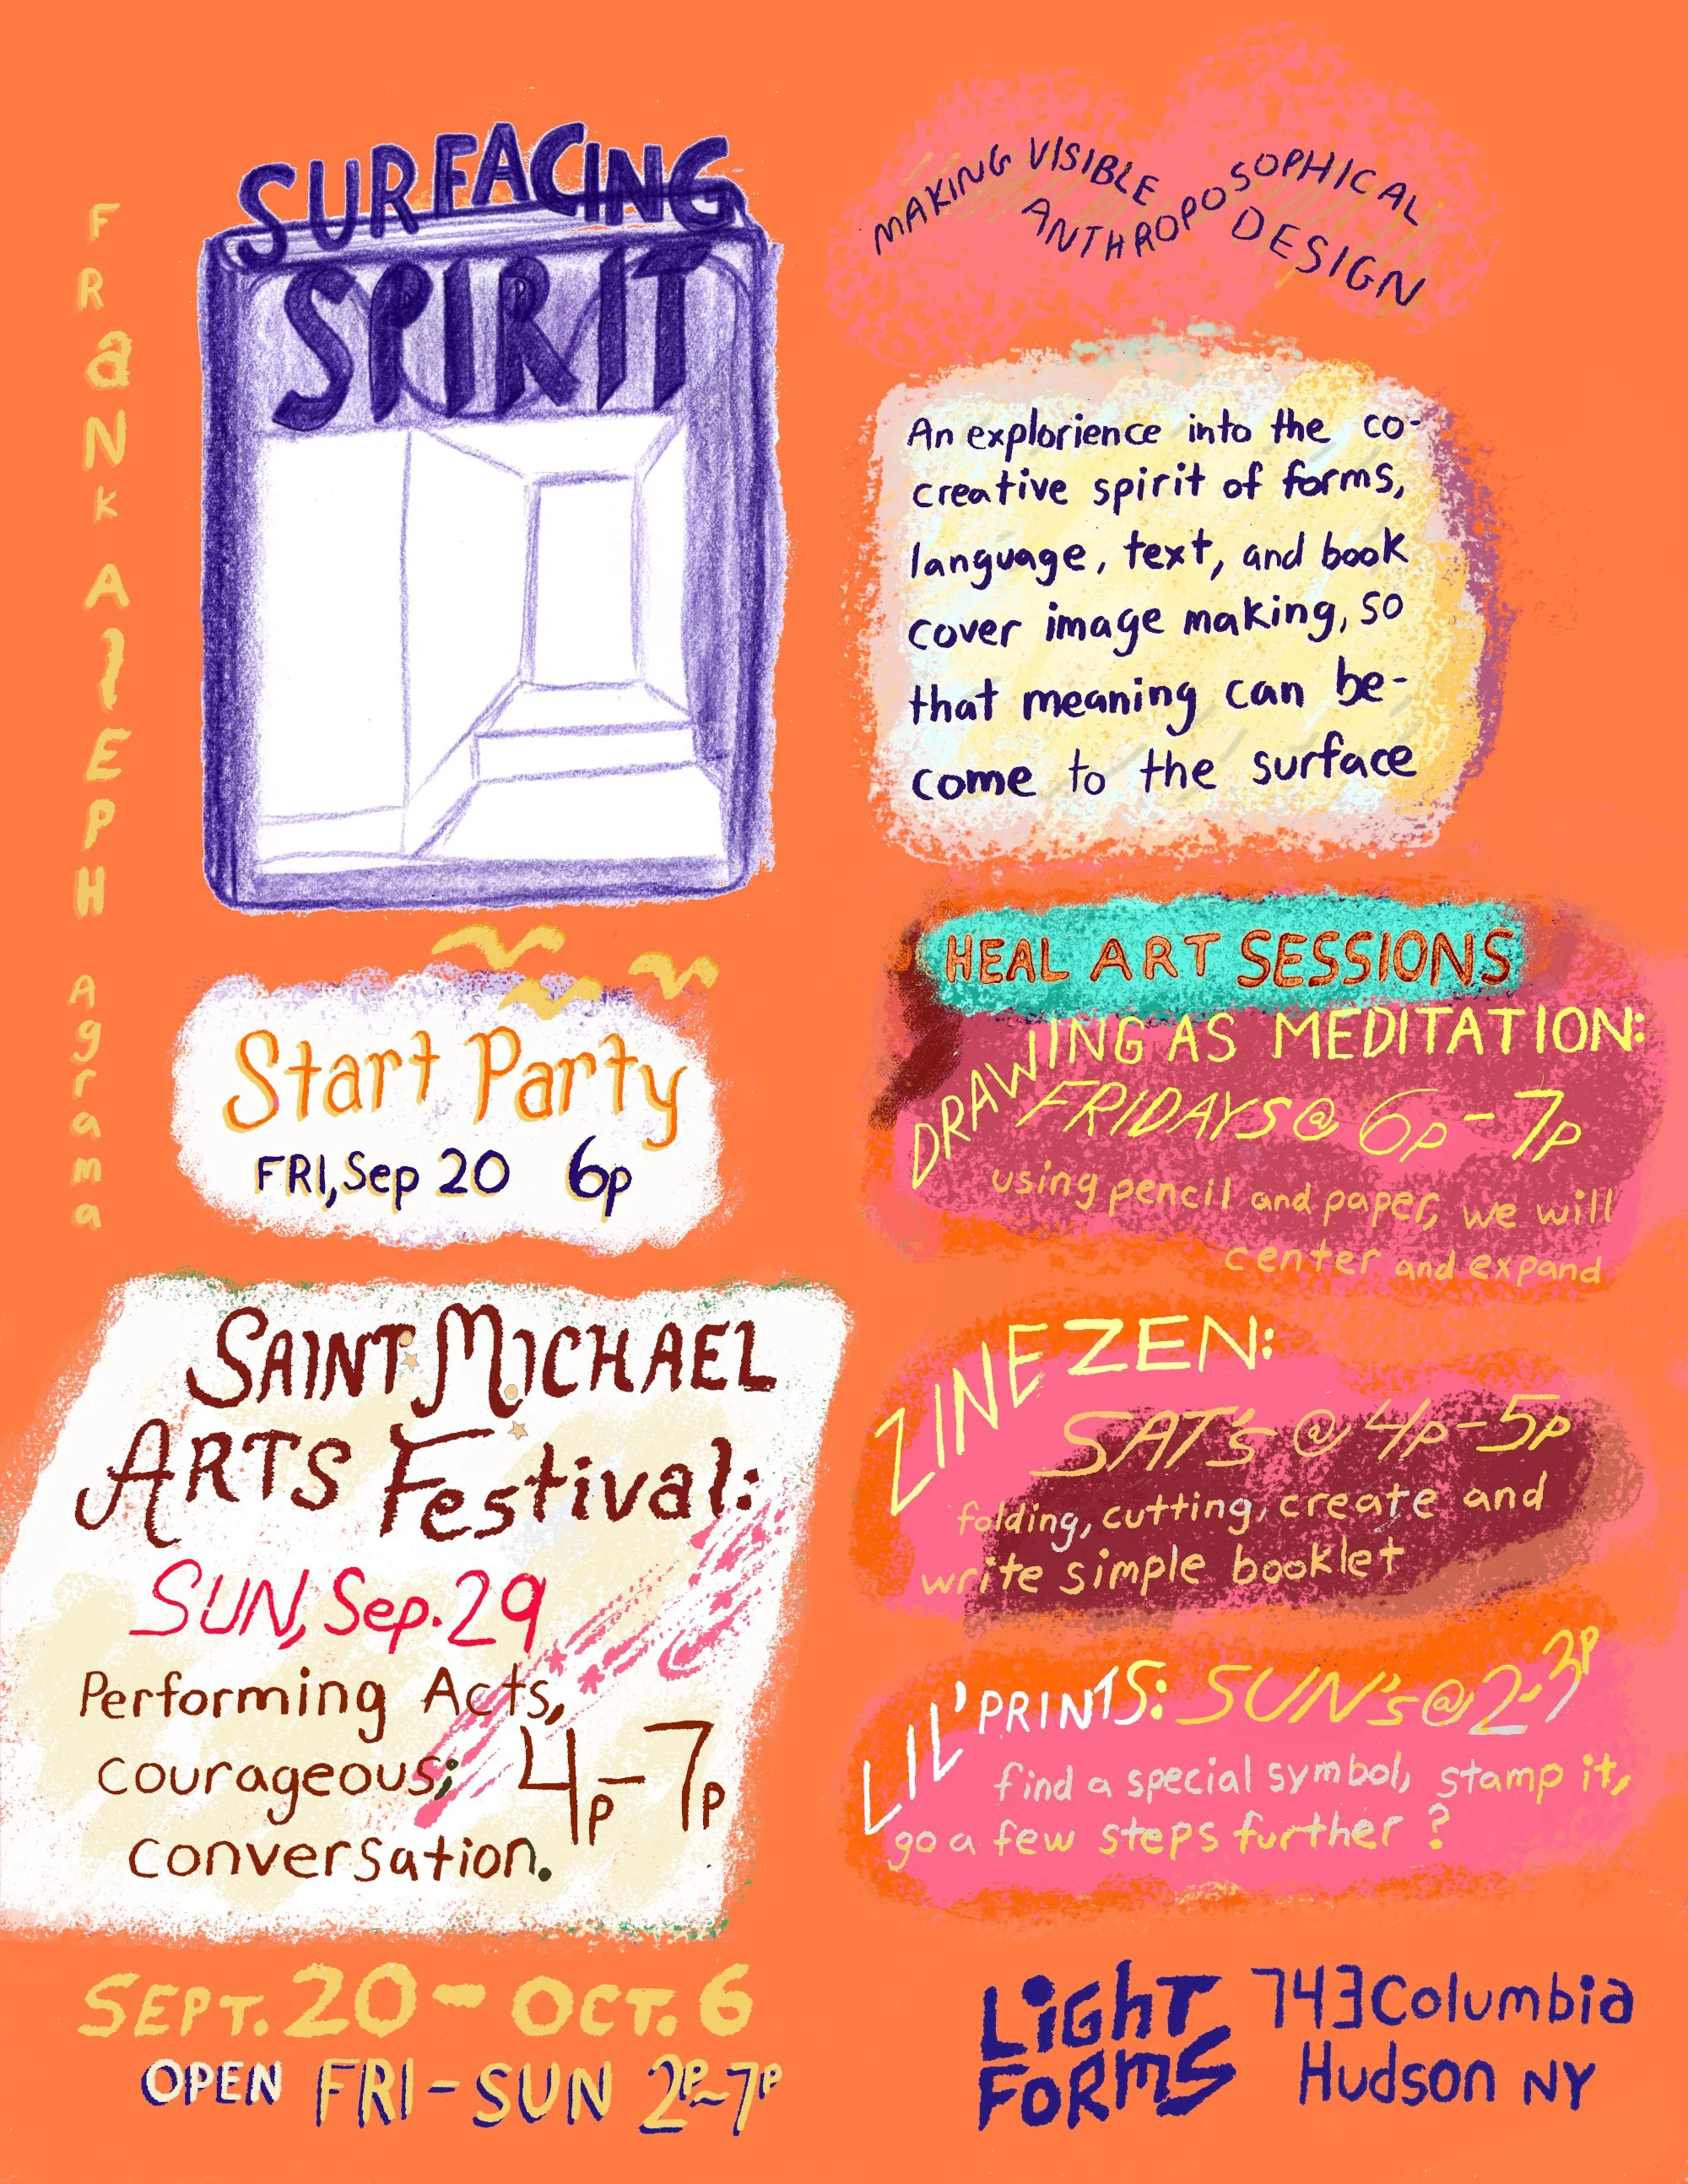 FRaNK AlEPH Agrama
SURFACING
SPIRIT
MAKING VISIBLE
ANTHROPOSOPHICAL
DESIGN
An explorience into the co-
creative spirit of forms,
language, text, and book
cover image making, so
that meaning can be-
come to the surface
Start Party
FRI, Sep 20 6p
SAINT MICHAEL
ARTS Festival:
SUN, Sep. 29
Performing Acts,
courageous;
conversation.
4p-7p
HEAL ART SESSIONS
DRAWING AS MEDITATION:
FRIDAYS @ 6p-7p
using pencil and paper, we will
center and expand
ZINE ZEN:
SAT's @ 4p-5p
folding, cutting, create and
write simple booklet
LIL' PRINTS: SUN's @ 2-3p
find a special symbol, stamp it,
go a few steps further ?
SEPT. 20 - OCT. 6
OPEN FRI - SUN 2p~7p
LiGhT
FoRmS
743 Columbia
Hudson NY